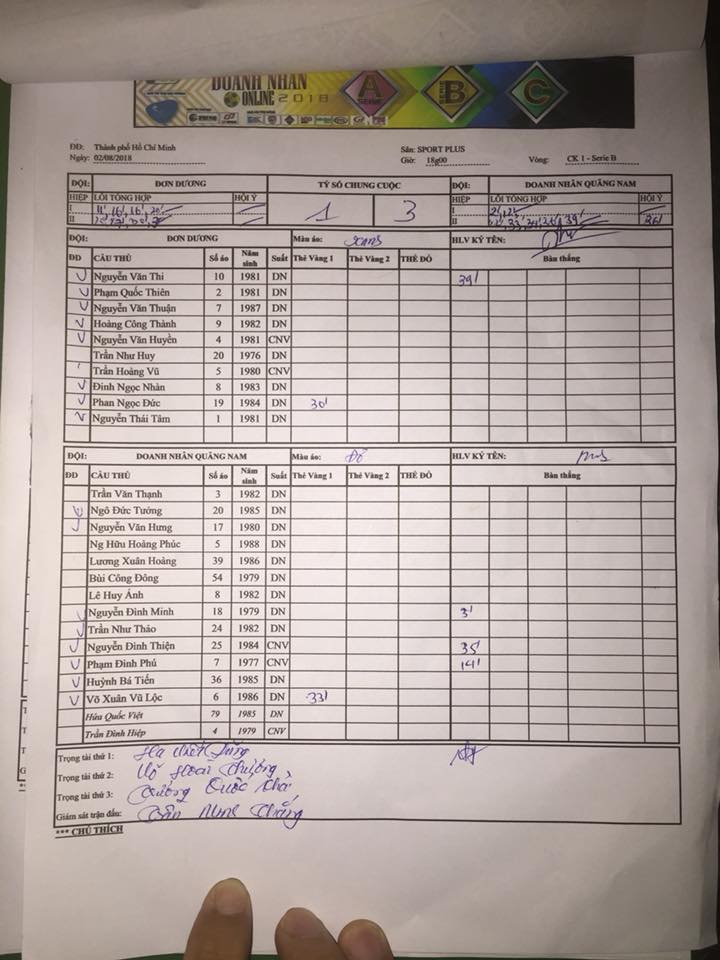 DOANH NHÂN
ONLINE 2018
A
SERIE
B
SERIE
C
ĐĐ: Thành phố Hồ Chí Minh Sân: SPORT PLUS
Ngày: 02/08/2018 Giờ: 18g00 Vòng: CK 1 - Serie B
ĐỘI: ĐƠN DƯƠNG TỶ SỐ CHUNG CUỘC ĐỘI: DOANH NHÂN QUẢNG NAM
HIỆP LỖI TỔNG HỢP HỘI Ý 1 3 HIỆP LỖI TỔNG HỢP HỘI Ý
I I
II II 26'
ĐỘI: ĐƠN DƯƠNG Màu áo: HLV KÝ TÊN:
ĐD CẦU THỦ Số áo Năm sinh Suất Thẻ Vàng 1 Thẻ Vàng 2 THẺ ĐỎ Bàn thắng
Nguyễn Văn Thi 10 1981 DN 39'
Phạm Quốc Thiên 2 1981 DN
Nguyễn Văn Thuận 7 1987 DN
Hoàng Công Thành 9 1982 DN
Nguyễn Văn Huyền 4 1981 CNV
Trần Như Huy 20 1976 DN
Trần Hoàng Vũ 5 1980 CNV
Đinh Ngọc Nhàn 8 1983 DN
Phan Ngọc Đức 19 1984 DN 30'
Nguyễn Thái Tâm 1 1981 DN
ĐỘI: DOANH NHÂN QUẢNG NAM Màu áo: Đỏ HLV KÝ TÊN:
ĐD CẦU THỦ Số áo Năm sinh Suất Thẻ Vàng 1 Thẻ Vàng 2 THẺ ĐỎ Bàn thắng
Trần Văn Thạnh 3 1982 DN
Ngô Đức Tưởng 20 1985 DN
Nguyễn Văn Hưng 17 1980 DN
Ng Hữu Hoàng Phúc 5 1988 DN
Lương Xuân Hoàng 39 1986 DN
Bùi Công Đông 54 1979 DN
Lê Huy Ánh 8 1982 DN
Nguyễn Đình Minh 18 1979 DN 3'
Trần Như Thảo 24 1982 DN
Nguyễn Đình Thiện 25 1984 CNV 35'
Phạm Đình Phú 7 1977 CNV 14'
Huỳnh Bá Tiến 36 1985 DN
Võ Xuân Vũ Lộc 6 1986 DN 33'
Hứa Quốc Việt 79 1985 DN
Trần Đình Hiệp 4 1979 CNV
Trọng tài thứ 1:
Trọng tài thứ 2:
Trọng tài thứ 3: Quốc
Giám sát trận đấu:
*** CHÚ THÍCH